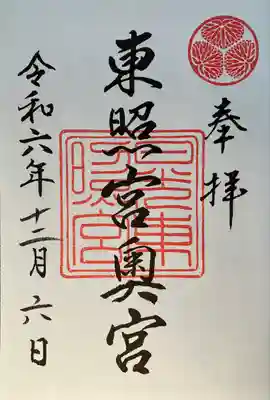 奉拝
東照宮奥宮
令和六年十二月六日